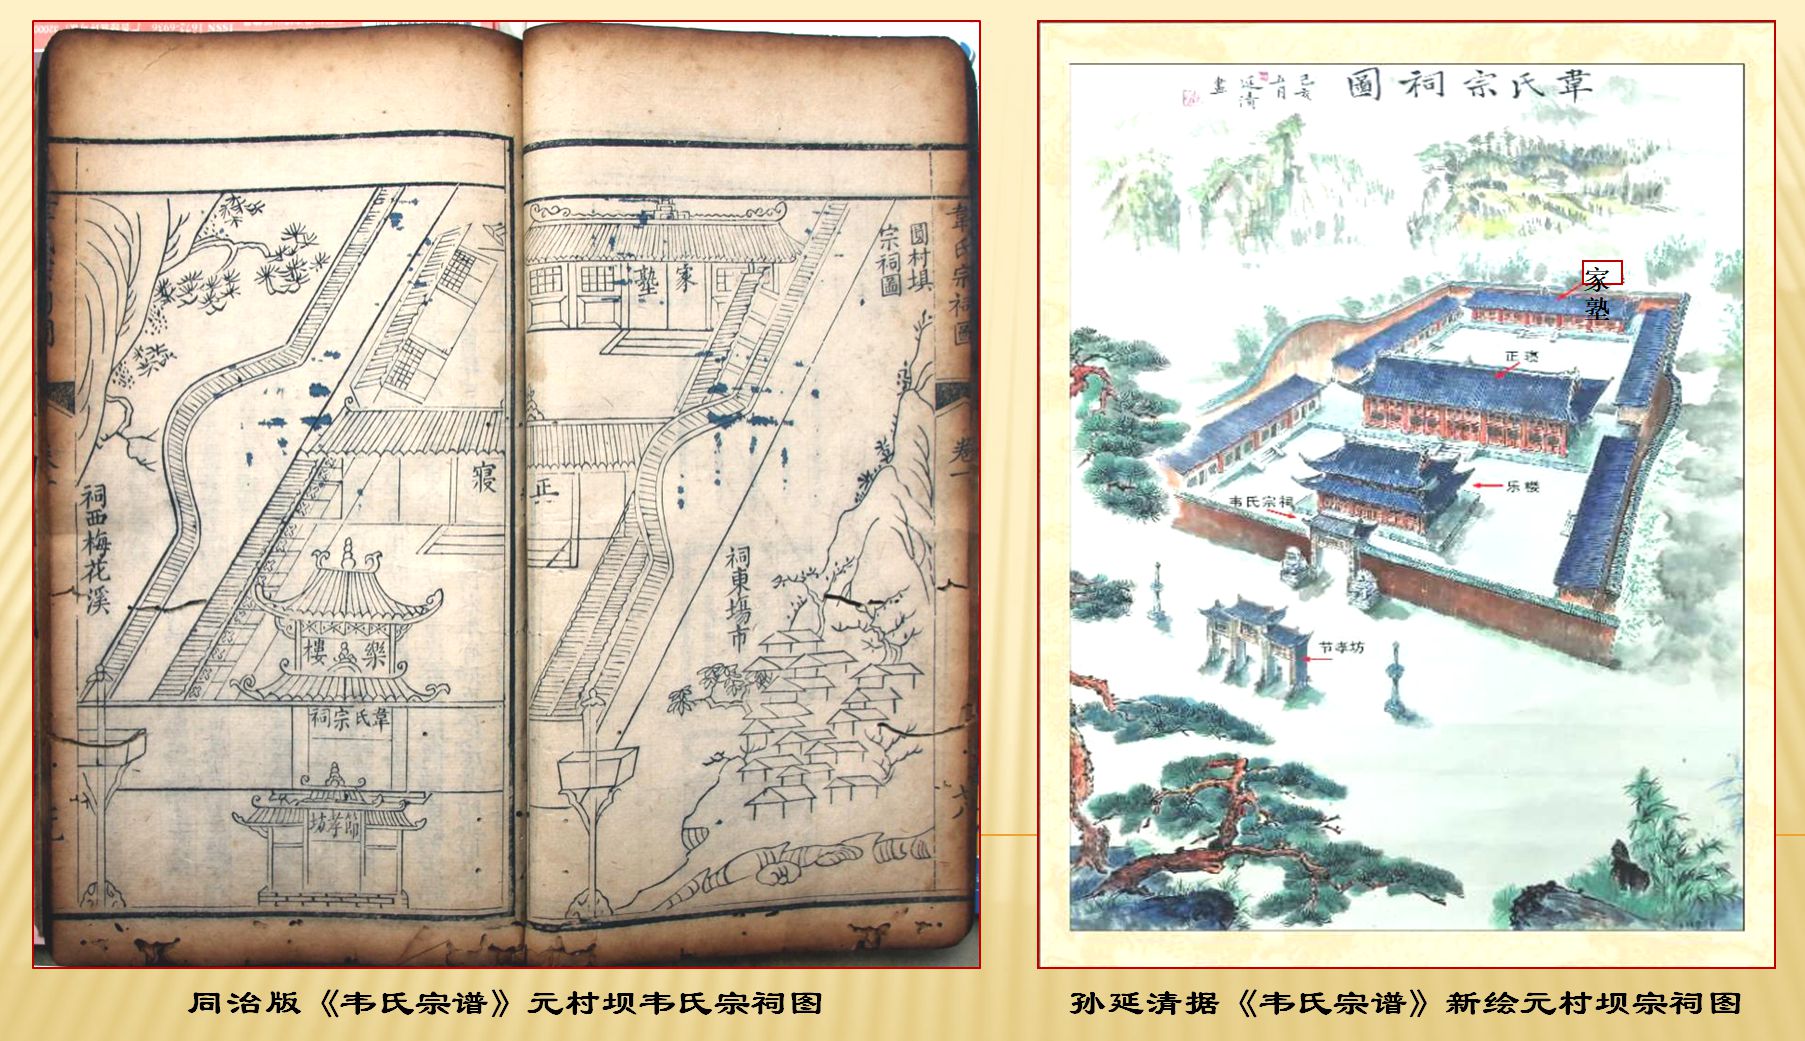 韋氏宗祠圖
圓村垻
宗祠圖
家塾
正寢
卷一
祠東塲市
祠西梅花溪
樂樓
韋氏宗祠
節孝坊
韋氏宗祠圖
己亥
五月
延清
畫
家塾
正寝
乐楼
韦氏宗祠
节孝坊
同治版《韦氏宗谱》元村坝韦氏宗祠图
孙延清据《韦氏宗谱》新绘元村坝宗祠图